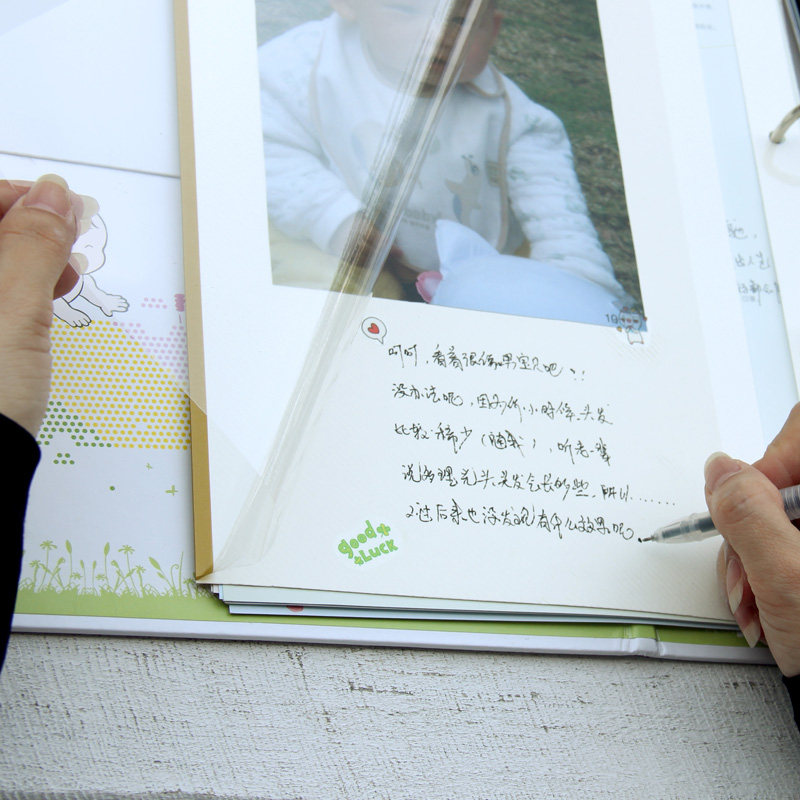 呵呵，看着很像男宝贝吧！！
没办法呢，因为你小时候头发
比较稀少（随我），听老一辈
说多理光头头发会长的些，所以.......
不过后来也没发现有什么效果呢
good
Luck
19